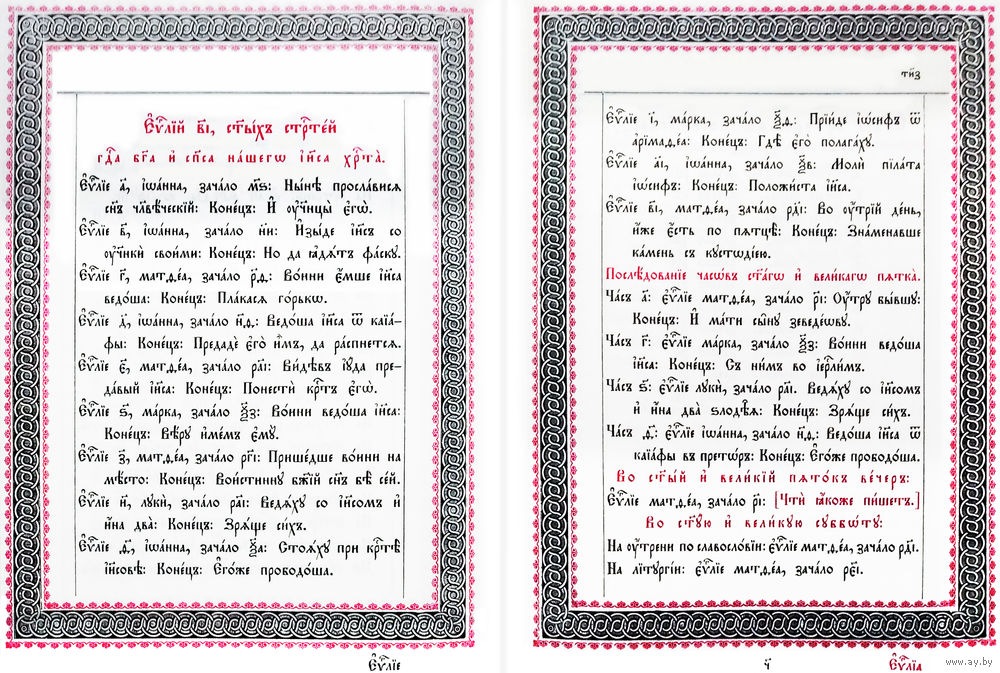 Є҆ѵⷢ҇лїй в҃і, ст҃ы́хъ стрⷭ҇те́й
гдⷭ҇а бг҃а и҆ сп҃са на́шегѡ і҆и҃са хрⷭ҇та̀.
Є҆ѵⷢ҇лїе а҃, і҆ѡа́нна, зача́ло м҃ѕ: Ны́нѣ просла́висѧ
сн҃ъ чл҃вѣ́ческїй: Коне́цъ: И҆ ᲂу҆чн҃цы̀ є҆гѡ̀.
Є҆ѵⷢ҇лїе в҃, і҆ѡа́нна, зача́ло н҃и: И҆зы́де і҆и҃съ со
ᲂу҆чн҃ки̑ свои́ми: Коне́цъ: Но да ꙗ҆дѧ́тъ фа́ску.
Є҆ѵⷢ҇лїе г҃, матѳ́еа, зача́ло р҃ѳ: Во́ини є҆́мше і҆и҃са
ведо́ша: Коне́цъ: Пла́касѧ го́рькѡ.
Є҆ѵⷢ҇лїе д҃, і҆ѡа́нна, зача́ло н҃ѳ: Ведо́ша і҆и҃са ѿ каїа́-
фы: Коне́цъ: Предадѐ є҆го̀ и҆̀мъ, да ра́спнетсѧ.
Є҆ѵⷢ҇лїе є҃, матѳ́еа, зача́ло ра҃і: Ви́дѣвъ і҆ꙋ́да пре-
да́вый і҆и҃са: Коне́цъ: Понестѝ крⷭ҇тъ є҆гѡ̀.
Є҆ѵⷢ҇лїе ѕ҃, ма́рка, зача́ло ѯ҃з: Во́ини ведо́ша і҆и҃са:
Коне́цъ: Вѣ́рꙋ и҆́мемъ є҆мꙋ̀.
Є҆ѵⷢ҇лїе з҃, матѳ́еа, зача́ло рг҃і: Прише́дше во́ини на
мѣ́сто: Коне́цъ: Вои́стиннꙋ бж҃їй сн҃ъ бѣ̀ се́й.
Є҆ѵⷢ҇лїе и҃, лꙋкѝ, зача́ло ра҃і: Ведѧ́хꙋ со і҆и҃сомъ и҆
и҆́на два̀: Коне́цъ: Зрѧ́ще си́хъ.
Є҆ѵⷢ҇лїе ѳ҃, і҆ѡа́нна, зача́ло ѯ҃а: Стоѧ́хꙋ при крⷭ҇тѣ̀
і҆и҃совѣ: Коне́цъ: Є҆го́же прободо́ша.
Є҆ѵⷢ҇лїе
ти҃з
Є҆ѵⷢ҇лїе і҃, ма́рка, зача́ло ѯ҃ѳ: Прїи́де і҆ѡ́сифъ ѿ
а҆рїмаѳ́еа: Коне́цъ: Гдѣ̀ є҆го̀ полага́хꙋ.
Є҆ѵⷢ҇лїе а҃і, і҆ѡа́нна, зача́ло ѯ҃в: Молѝ пїла́та
і҆ѡ́сифъ: Коне́цъ: Положи́ста і҆и҃са.
Є҆ѵⷢ҇лїе в҃і, матѳ́еа, зача́ло рд҃і: Во ᲂу҆́трїй де́нь,
и҆́же є҆́сть по пѧтцѣ̀: Коне́цъ: Зна́менавше
ка́мень съ кꙋстѡді́ею.
Послѣ́дованїе часѡ́въ ст҃а́гѡ и҆ вели́кагѡ пѧтка̀.
Ча́съ а҃: є҆ѵⷢ҇лїе матѳ́еа, зача́ло р҃і: Оу҆́трꙋ бы́вшꙋ:
Коне́цъ: И҆ ма́ти сы́нꙋ зеведе́ѡвꙋ.
Ча́съ г҃: є҆ѵⷢ҇лїе ма́рка, зача́ло ѯ҃з: Во́ини ведо́ша
і҆и҃са: Коне́цъ: Съ ни́мъ во і҆ерⷭ҇ли́мъ.
Ча́съ ѕ҃: є҆ѵⷢ҇лїе лꙋкѝ, зача́ло ра҃і: Ведѧ́хꙋ со і҆и҃сомъ
и҆ и҆́на два̀ ѕлодѣ̑ѧ: Коне́цъ: Зрѧ́ще си́хъ.
Ча́съ ѳ҃: є҆ѵⷢ҇лїе і҆ѡа́нна, зача́ло н҃ѳ: Ведо́ша і҆и҃са ѿ
каїа́фы въ прето́ръ: Коне́цъ: Є҆го́же прободо́ша.
Во ст҃ы́й и҆ вели́кїй пѧто́къ ве́черъ:
Є҆ѵⷢ҇лїе матѳ́еа, зача́ло р҃і: [Чтѝ ꙗ҆́коже пи́шетъ.]
Во ст҃ꙋ́ю и҆ вели́кꙋю сꙋббѡ́тꙋ:
На ᲂу҆́трени по славосло́вїи: є҆ѵⷢ҇лїе матѳ́еа, зача́ло рд҃і.
На лїтꙋргі́и: є҆ѵⷢ҇лїе матѳ́еа, зача́ло рє҃і.
Є҆ѵⷢ҇лїа
www.ay.by